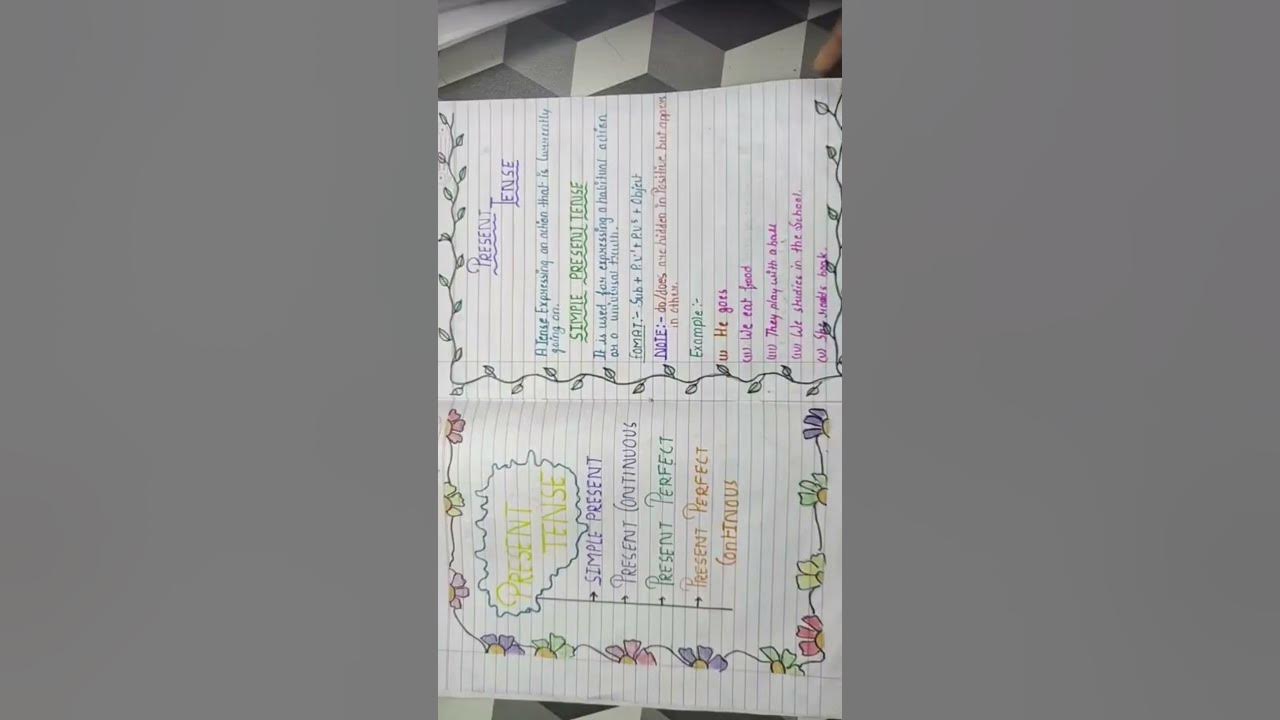 PRESENT
TENSE
SIMPLE PRESENT
PRESENT CONTINUOUS
PRESENT PERFECT
PRESENT PERFECT
CONTINOUS
PRESENT
TENSE
A Tense Expressing an action that is Currently
going on.
SIMPLE PRESENT TENSE
It is used for expressing a habitual action
or a universal truth.
FOMAT:- Sub + P.V¹ + P.V⁵ + Object
NOTE:- do/does are hidden in Positive but appears
in other.
Example:-
(i) He goes
(ii) We eat food
(iii) They play with a ball
(iv) We studies in the School.
(v) reads book.